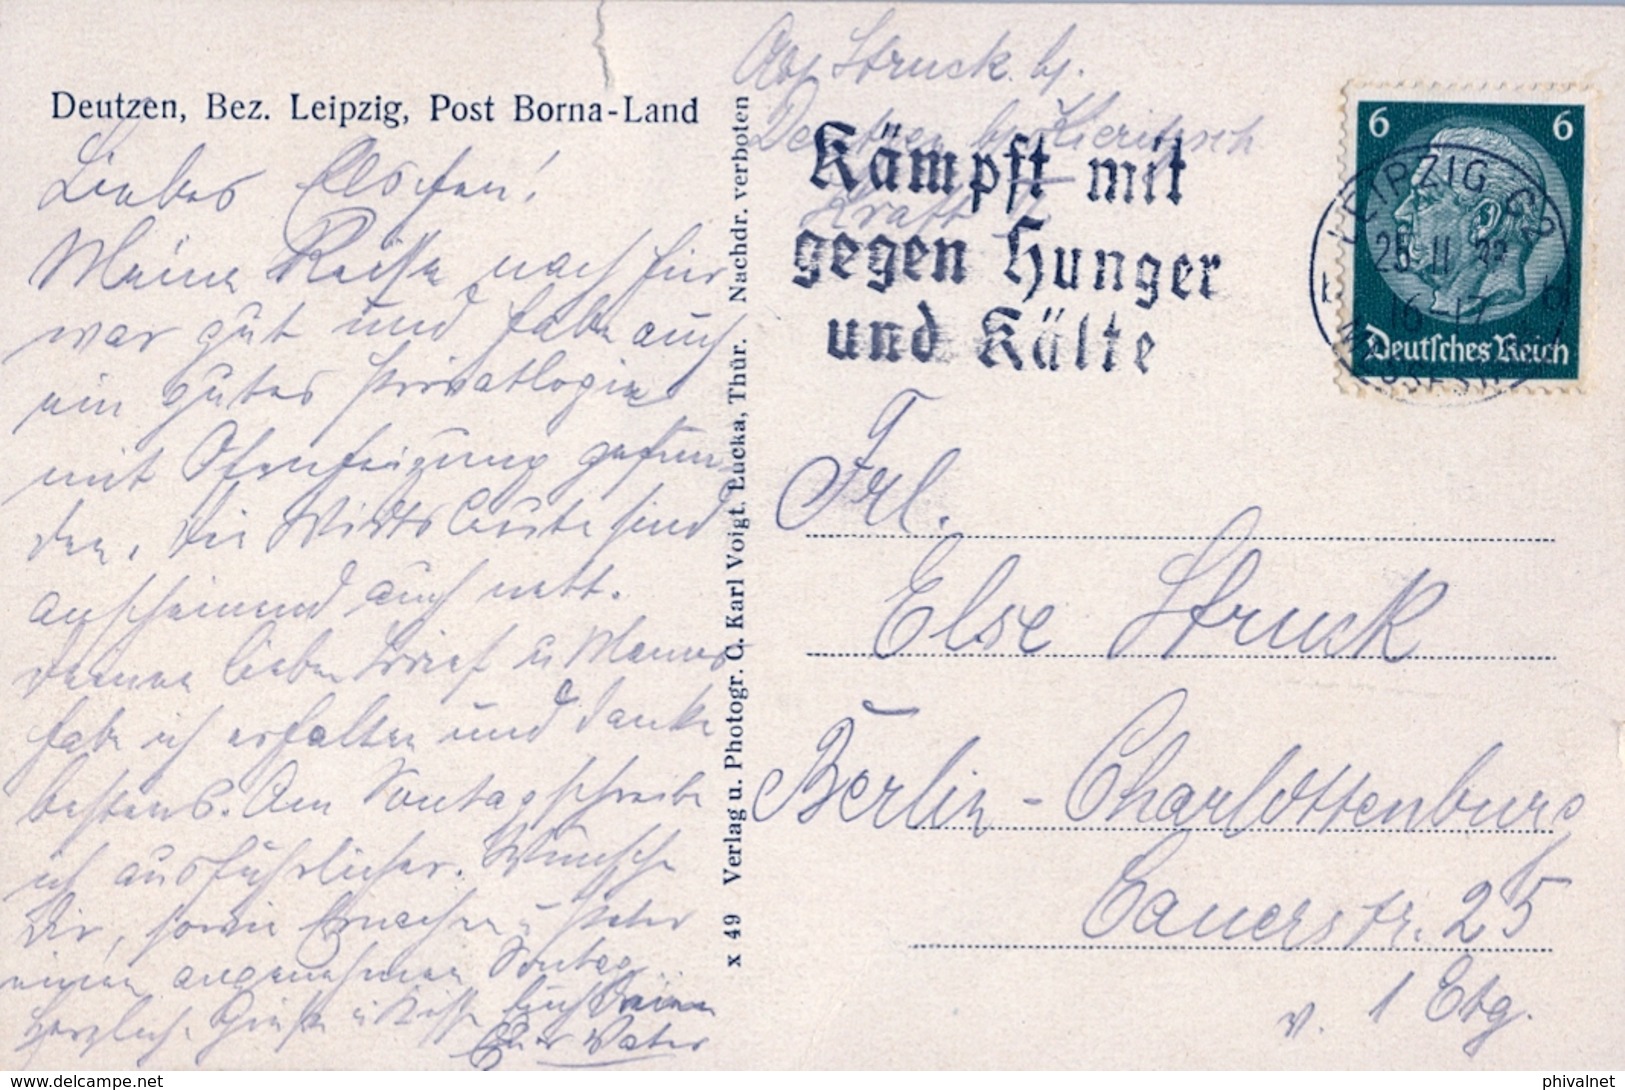 Deutzen, Bez. Leipzig, Post Borna-Land
Liebes Elschen!
Meine Reise nach hier
war gut und habe auch
ein gutes Privatlogie
mit Ofenheizung gefun-
den. Die Wirtsleute sind
anscheinend auch nett.
Deinen lieben Brief u
habe ich erhalten und danke
bestens. Am Sontag schreibe
ich ausführlicher. Wünsche
Dir, sowie u Peter
einen angenehmen Sontag
Herzliche Grüße u Küsse Euch
Euer Vater
x 49 Verlag u. Photogr. C. Karl Voigt, Lucka, Thür. Nachdr. verboten
Abs Struck bj.
Deutzen b/ Kieritzsch
Kraft
Kämpft mit
gegen Hunger
und Kälte
6 6
LEIPZIG C2
25.11.33
16-17
Deutsches Reich
Frl.
Else Struck
Berlin-Charlottenburg
Sauerstr. 25
v. 1 Etg.
https://www.delcampe.net
phivalnet